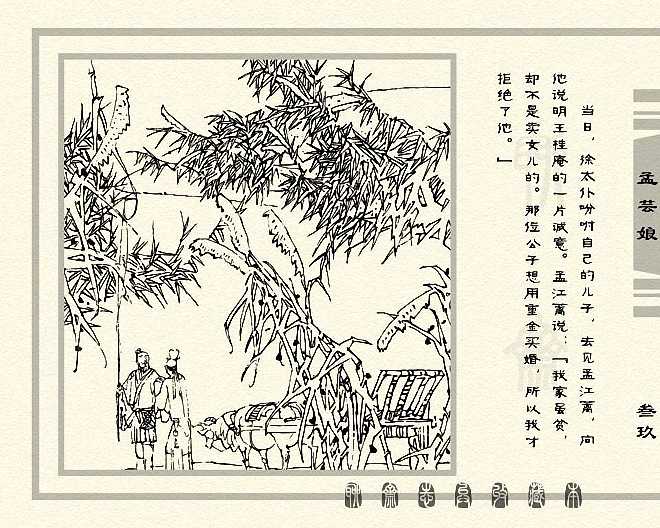 当日，徐太仆吩咐自己的儿子，去见孟江蓠，向
他说明王桂庵的一片诚意。孟江蓠说：「我家虽贫，
却不是卖女儿的。那位公子想用重金买婚，所以我才
拒绝了他。」
孟芸娘
叁玖